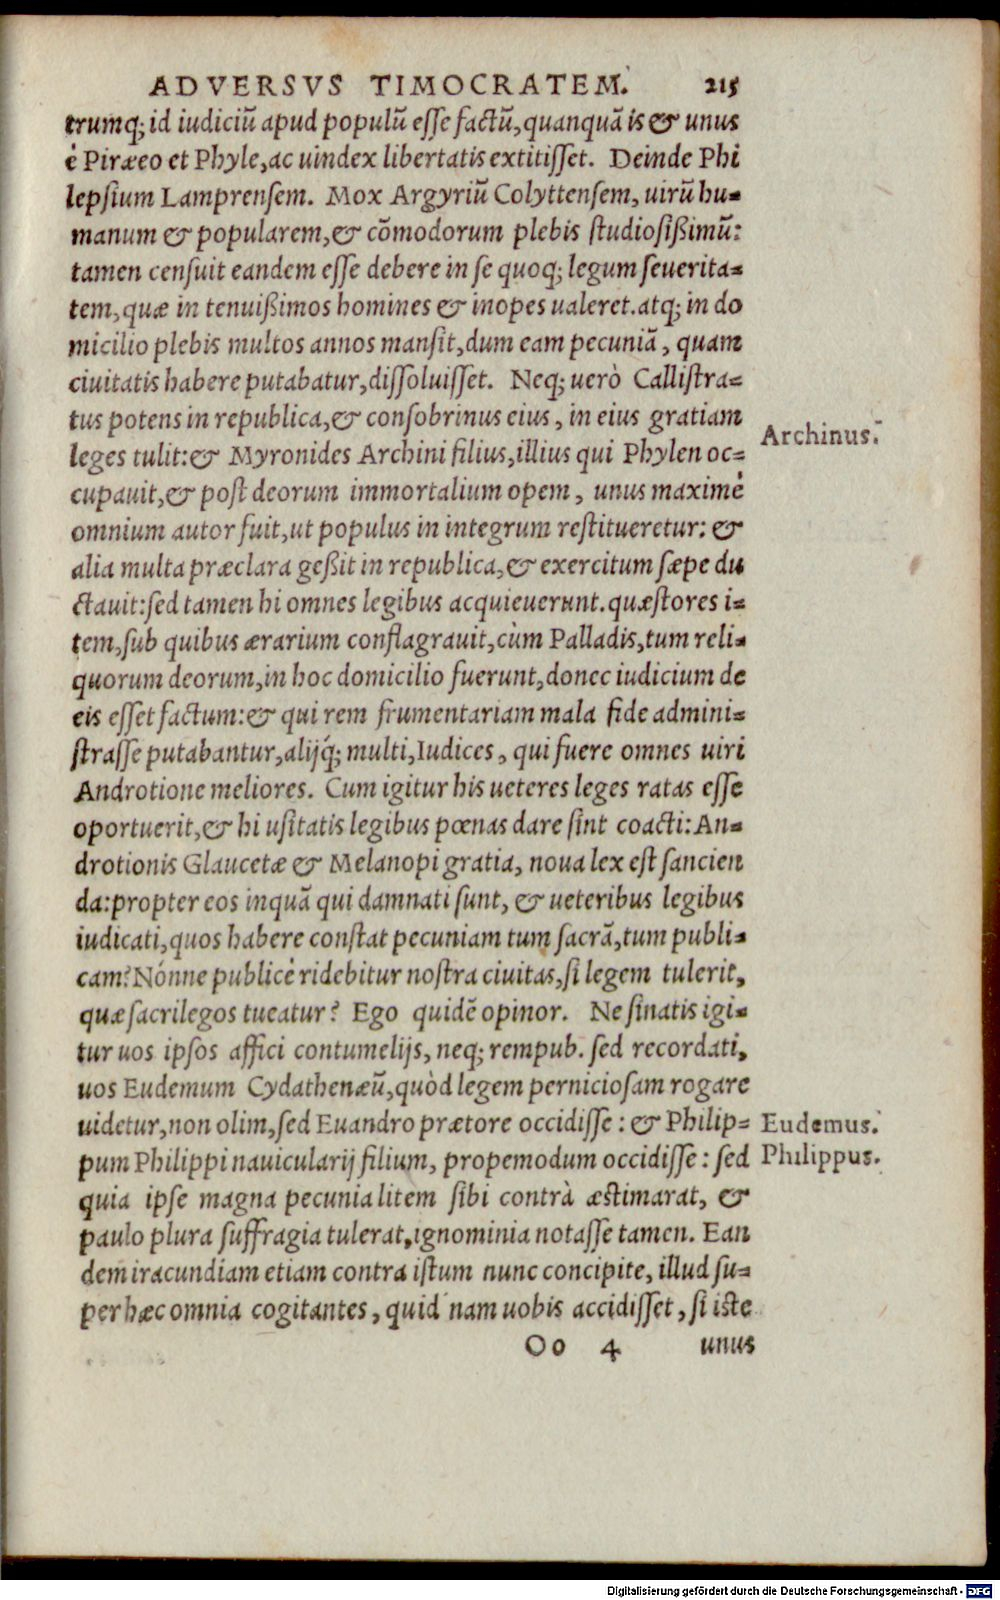 ADVERSVS TIMOCRATEM. 215
trumq; id iudiciũ apud populũ esse factũ, quanquã is & unus
è Piræeo et Phyle, ac uindex libertatis extitisset. Deinde Phi
lepsium Lamprensem. Mox Argyriũ Colyttensem, uirũ hu-
manum & popularem, & cõmodorum plebis studiosißimũ:
tamen censuit eandem esse debere in se quoq; legum seuerita-
tem, quæ in tenuißimos homines & inopes ualeret. atq; in do
micilio plebis multos annos mansit, dum eam pecuniã, quam
ciuitatis habere putabatur, dissoluisset. Neq; uerò Callistra-
tus potens in republica, & consobrinus eius, in eius gratiam
Archinus.
leges tulit: & Myronides Archini filius, illius qui Phylen oc-
cupauit, & post deorum immortalium opem, unus maximè
omnium autor fuit, ut populus in integrum restitueretur: &
alia multa præclara geßit in republica, & exercitum sæpe du
ctauit: sed tamen hi omnes legibus acquieuerunt. quæstores i-
tem, sub quibus ærarium conflagrauit, cùm Palladis, tum reli-
quorum deorum, in hoc domicilio fuerunt, donec iudicium de
eis esset factum: & qui rem frumentariam mala fide admini-
strasse putabantur, alijq́; multi, Iudices, qui fuere omnes uiri
Androtione meliores. Cum igitur his ueteres leges ratas esse
oportuerit, & hi usitatis legibus pœnas dare sint coacti: An-
drotionis Glaucetæ & Melanopi gratia, noua lex est sancien
da: propter eos inquã qui damnati sunt, & ueteribus legibus
iudicati, quos habere constat pecuniam tum sacrã, tum publi-
cam? Nónne publicè ridebitur nostra ciuitas, si legem tulerit,
quæ sacrilegos tueatur? Ego quidẽ opinor. Ne sinatis igi-
tur uos ipsos affici contumelijs, neq; rempub. sed recordati,
uos Eudemum Cydathenæũ, quòd legem perniciosam rogare
uidetur, non olim, sed Euandro prætore occidisse: & Philip-
Eudemus.
pum Philippi nauicularij filium, propemodum occidisse: sed
Philippus.
quia ipse magna pecunia litem sibi contrà æstimarat, &
paulo plura suffragia tulerat, ignominia notasse tamen. Ean
dem iracundiam etiam contra istum nunc concipite, illud su-
per hæc omnia cogitantes, quid nam uobis accidisset, si iste
Oo 4 unus
Digitalisierung gefördert durch die Deutsche Forschungsgemeinschaft - DFG